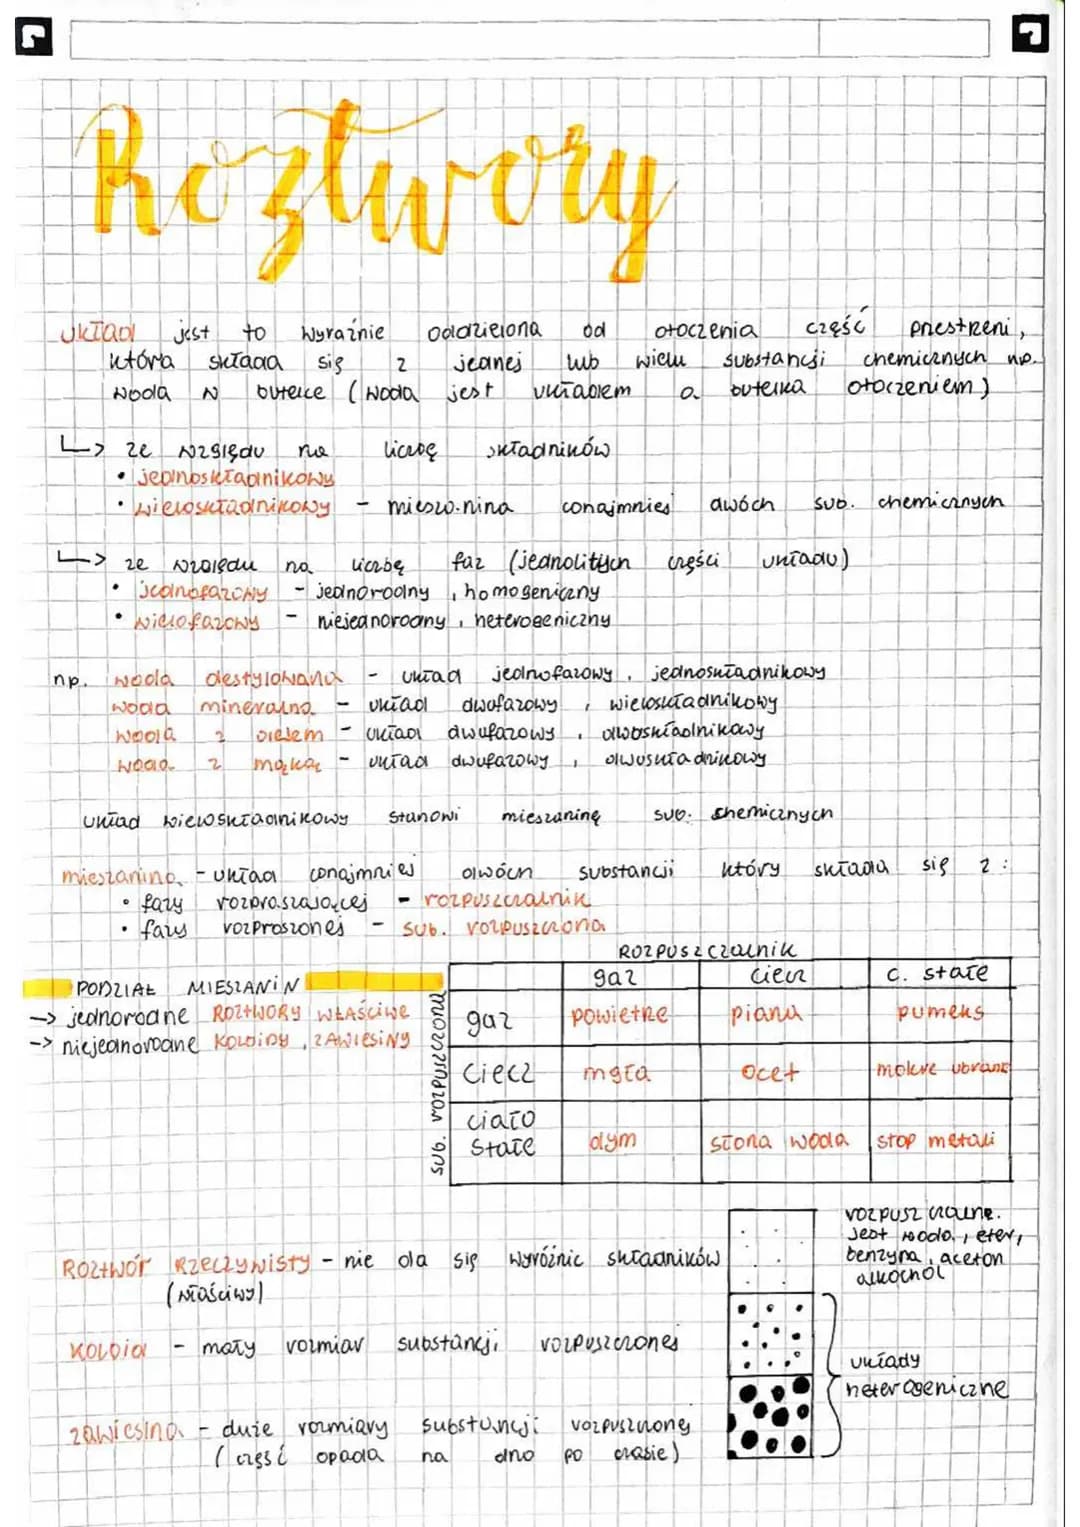 Roztwory
układ jest to wyraźnie oddzielona od otoczenia część przestrzeni,
która składa się z jednej lub wielu substancji chemicznych np.
woda w butelce (woda jest układem a butelka otoczeniem)
↳ ze względu na liczbę składników
• jednoskładnikowy
• wieloskładnikowy - mieszanina conajmniej dwóch sub. chemicznych
↳ ze względu na liczbę faz (jednolitych części układu)
• jednofazowy - jednorodny, homogeniczny
• wielofazowy - niejednorodny, heterogeniczny
np. woda destylowana - układ jednofazowy, jednoskładnikowy
woda mineralna - układ dwufazowy, wieloskładnikowy
woda z olejem - układ dwufazowy, dwuskładnikowy
woda z mąką - układ dwufazowy, dwuskładnikowy
układ wieloskładnikowy stanowi mieszaninę sub. chemicznych
mieszanina - układ conajmniej dwóch substancji który składa się z:
• fazy rozpraszającej - rozpuszczalnik
• fazy rozproszonej - sub. rozpuszczona
PODZIAŁ MIESZANIN
-> jednorodne ROZTWORY WŁAŚCIWE
-> niejednorodne KOLOIDY, ZAWIESINY
ROZPUSZCZALNIK
gaz ciecz c. stałe
sub. rozpuszczona
gaz powietrze piana pumeks
ciecz mgła ocet mokre ubranie
ciało stałe dym słona woda stop metali
ROZTWÓR RZECZYWISTY - nie da się wyróżnić składników
(właściwy)
rozpuszczalne.
jest woda, eter,
benzyna, aceton
alkochol
KOLOID - mały rozmiar substancji rozpuszczonej
układy
heterogeniczne
zawiesina - duże rozmiary substancji rozpuszczonej
(część opada na dno po czasie)